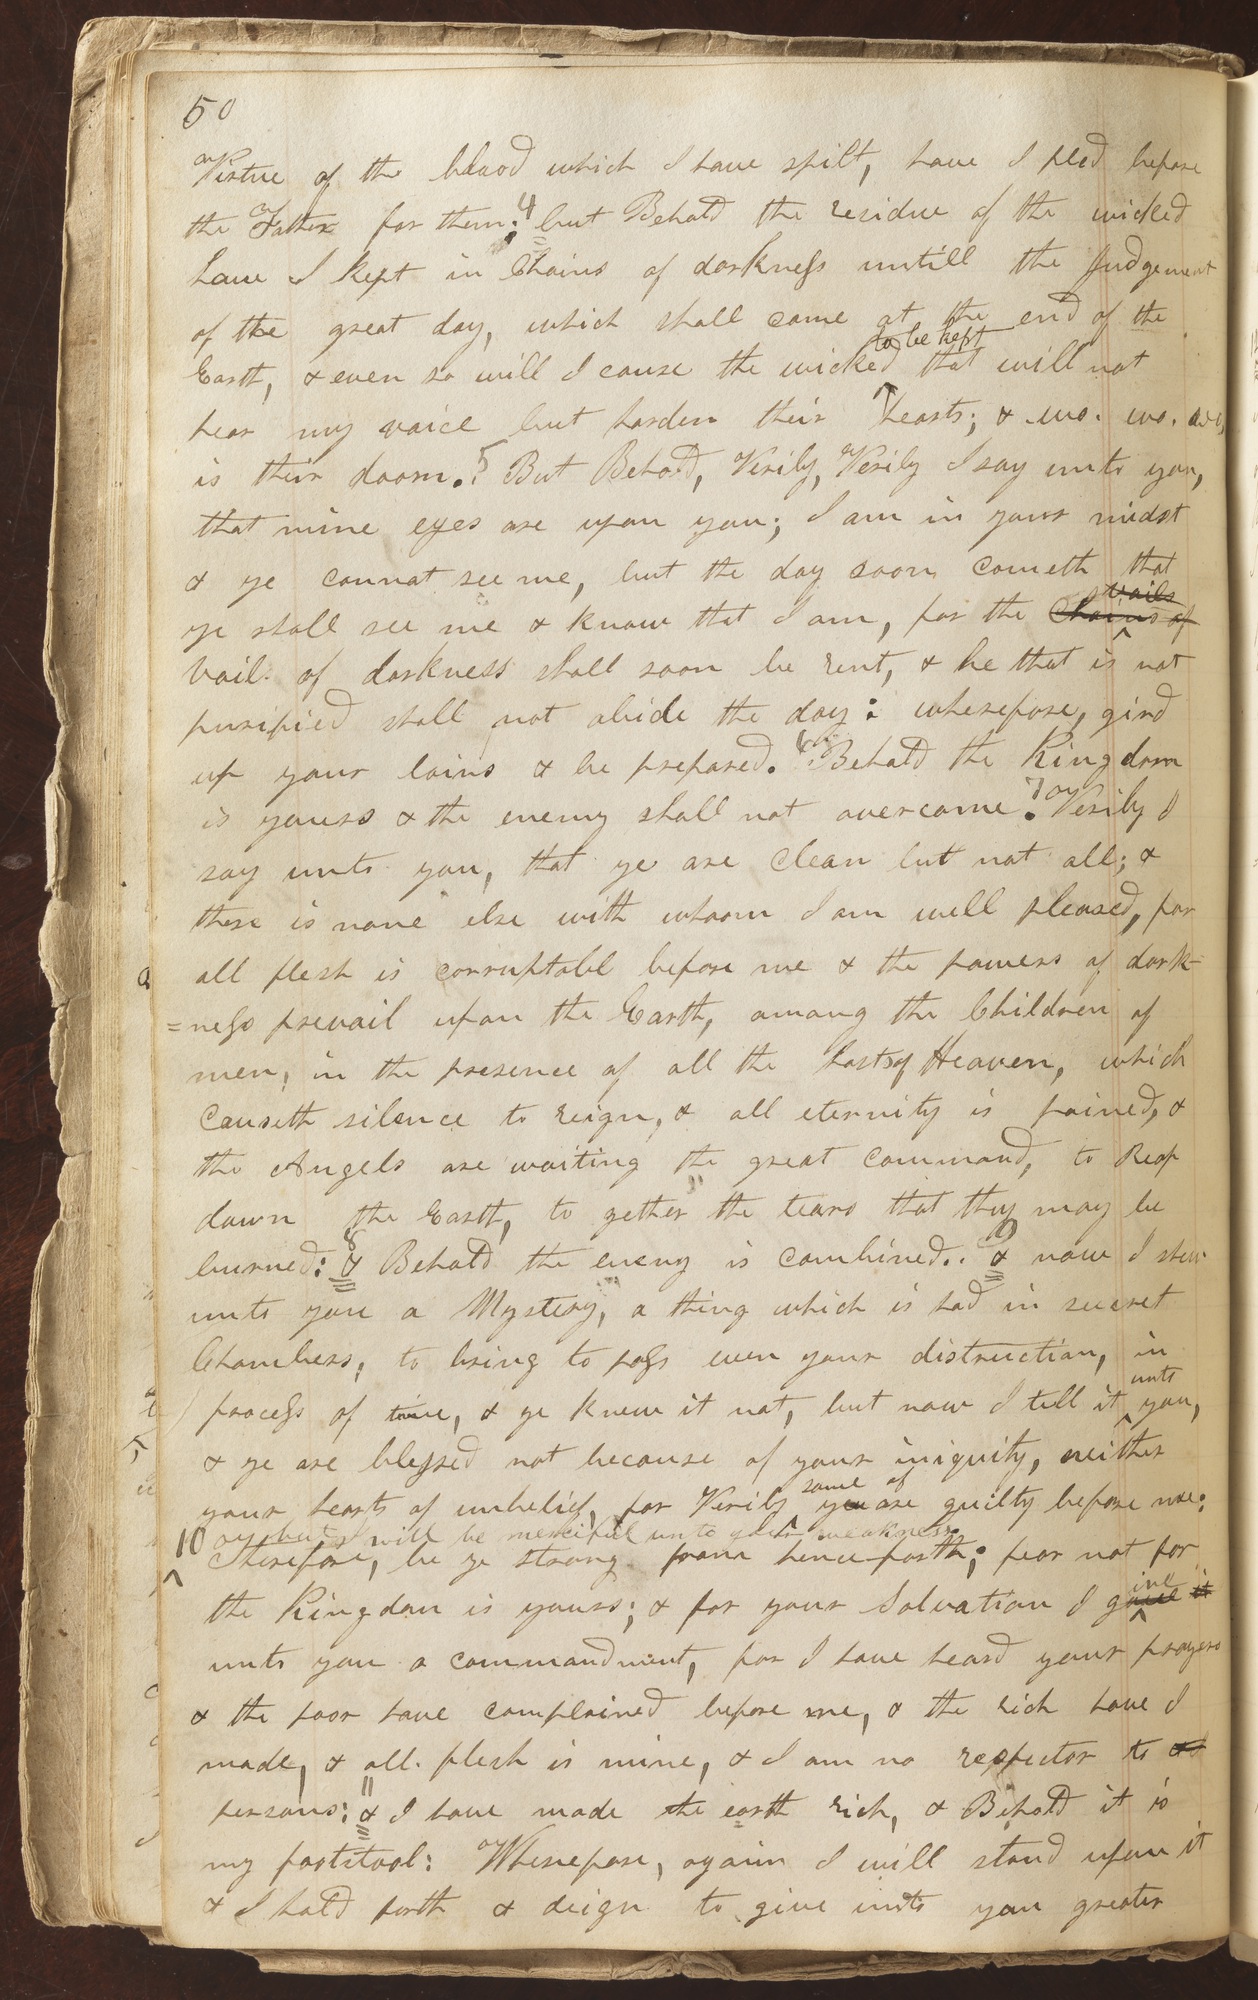 50
Virtue of the blood which I have spilt, have I pled before
the Father for them; 4 but Behold the residue of the wicked
have I kept in Chains of darkness untill the Judgement
of the great day, which shall come at the end of the
to be kept
Earth, & even so will I cause the wicked ^ that will not
hear my voice but harden their hearts; & wo. wo. wo,
is their doom. 5 But Behold, Verily, Verily I say unto you,
that mine eyes are upon you; I am in your midst
& ye cannot see me, but the day soon cometh that
vails
ye shall see me & know that I am, for the Chains ^ of
vail of darkness shall soon be rent, & he that is not
purified shall not abide the day: wherefore, gird
up your loins & be prepared. 6 Behold the Kingdom
is yours & the enemy shall not overcome. 7 Verily I
say unto you, that ye are Clean but not all; &
there is none else with whom I am well pleased, for
all flesh is corruptabl before me & the powers of dark-
=ness prevail upon the Earth, among the Children of
men, in the presence of all the hosts of Heaven, which
Causeth silence to reign, & all eternity is pained, &
the Angels are waiting the great command, to Reap
down the Earth, to gether the tears that they may be
burned: 8 & Behold the enemy is combined. 9 & now I shew
unto you a Mystery, a thing which is had in secret
Chambers, to bring to pass even your distruction, in
unto
process of time, & ye knew it not, but now I tell it ^ you,
& ye are blessed not because of your iniquity, neither
some of
your hearts of unbelief, for Verily ^ you are guilty before me:
but I will be merciful unto your weakness
10 ^ Therefore, be ye strong from henceforth; fear not for
ive
the Kingdom is yours; & for your Salvation I gave ^ it
unto you a commandment, for I have heard your prayers
& the poor have complained before me, & the rich have I
made, & all flesh is mine, & I am no respector to of
persons: 11 & I have made the earth rich, & Behold it is
my footstool: Wherefore, again I will stand upon it
& I hold forth & deign to give unto you greater